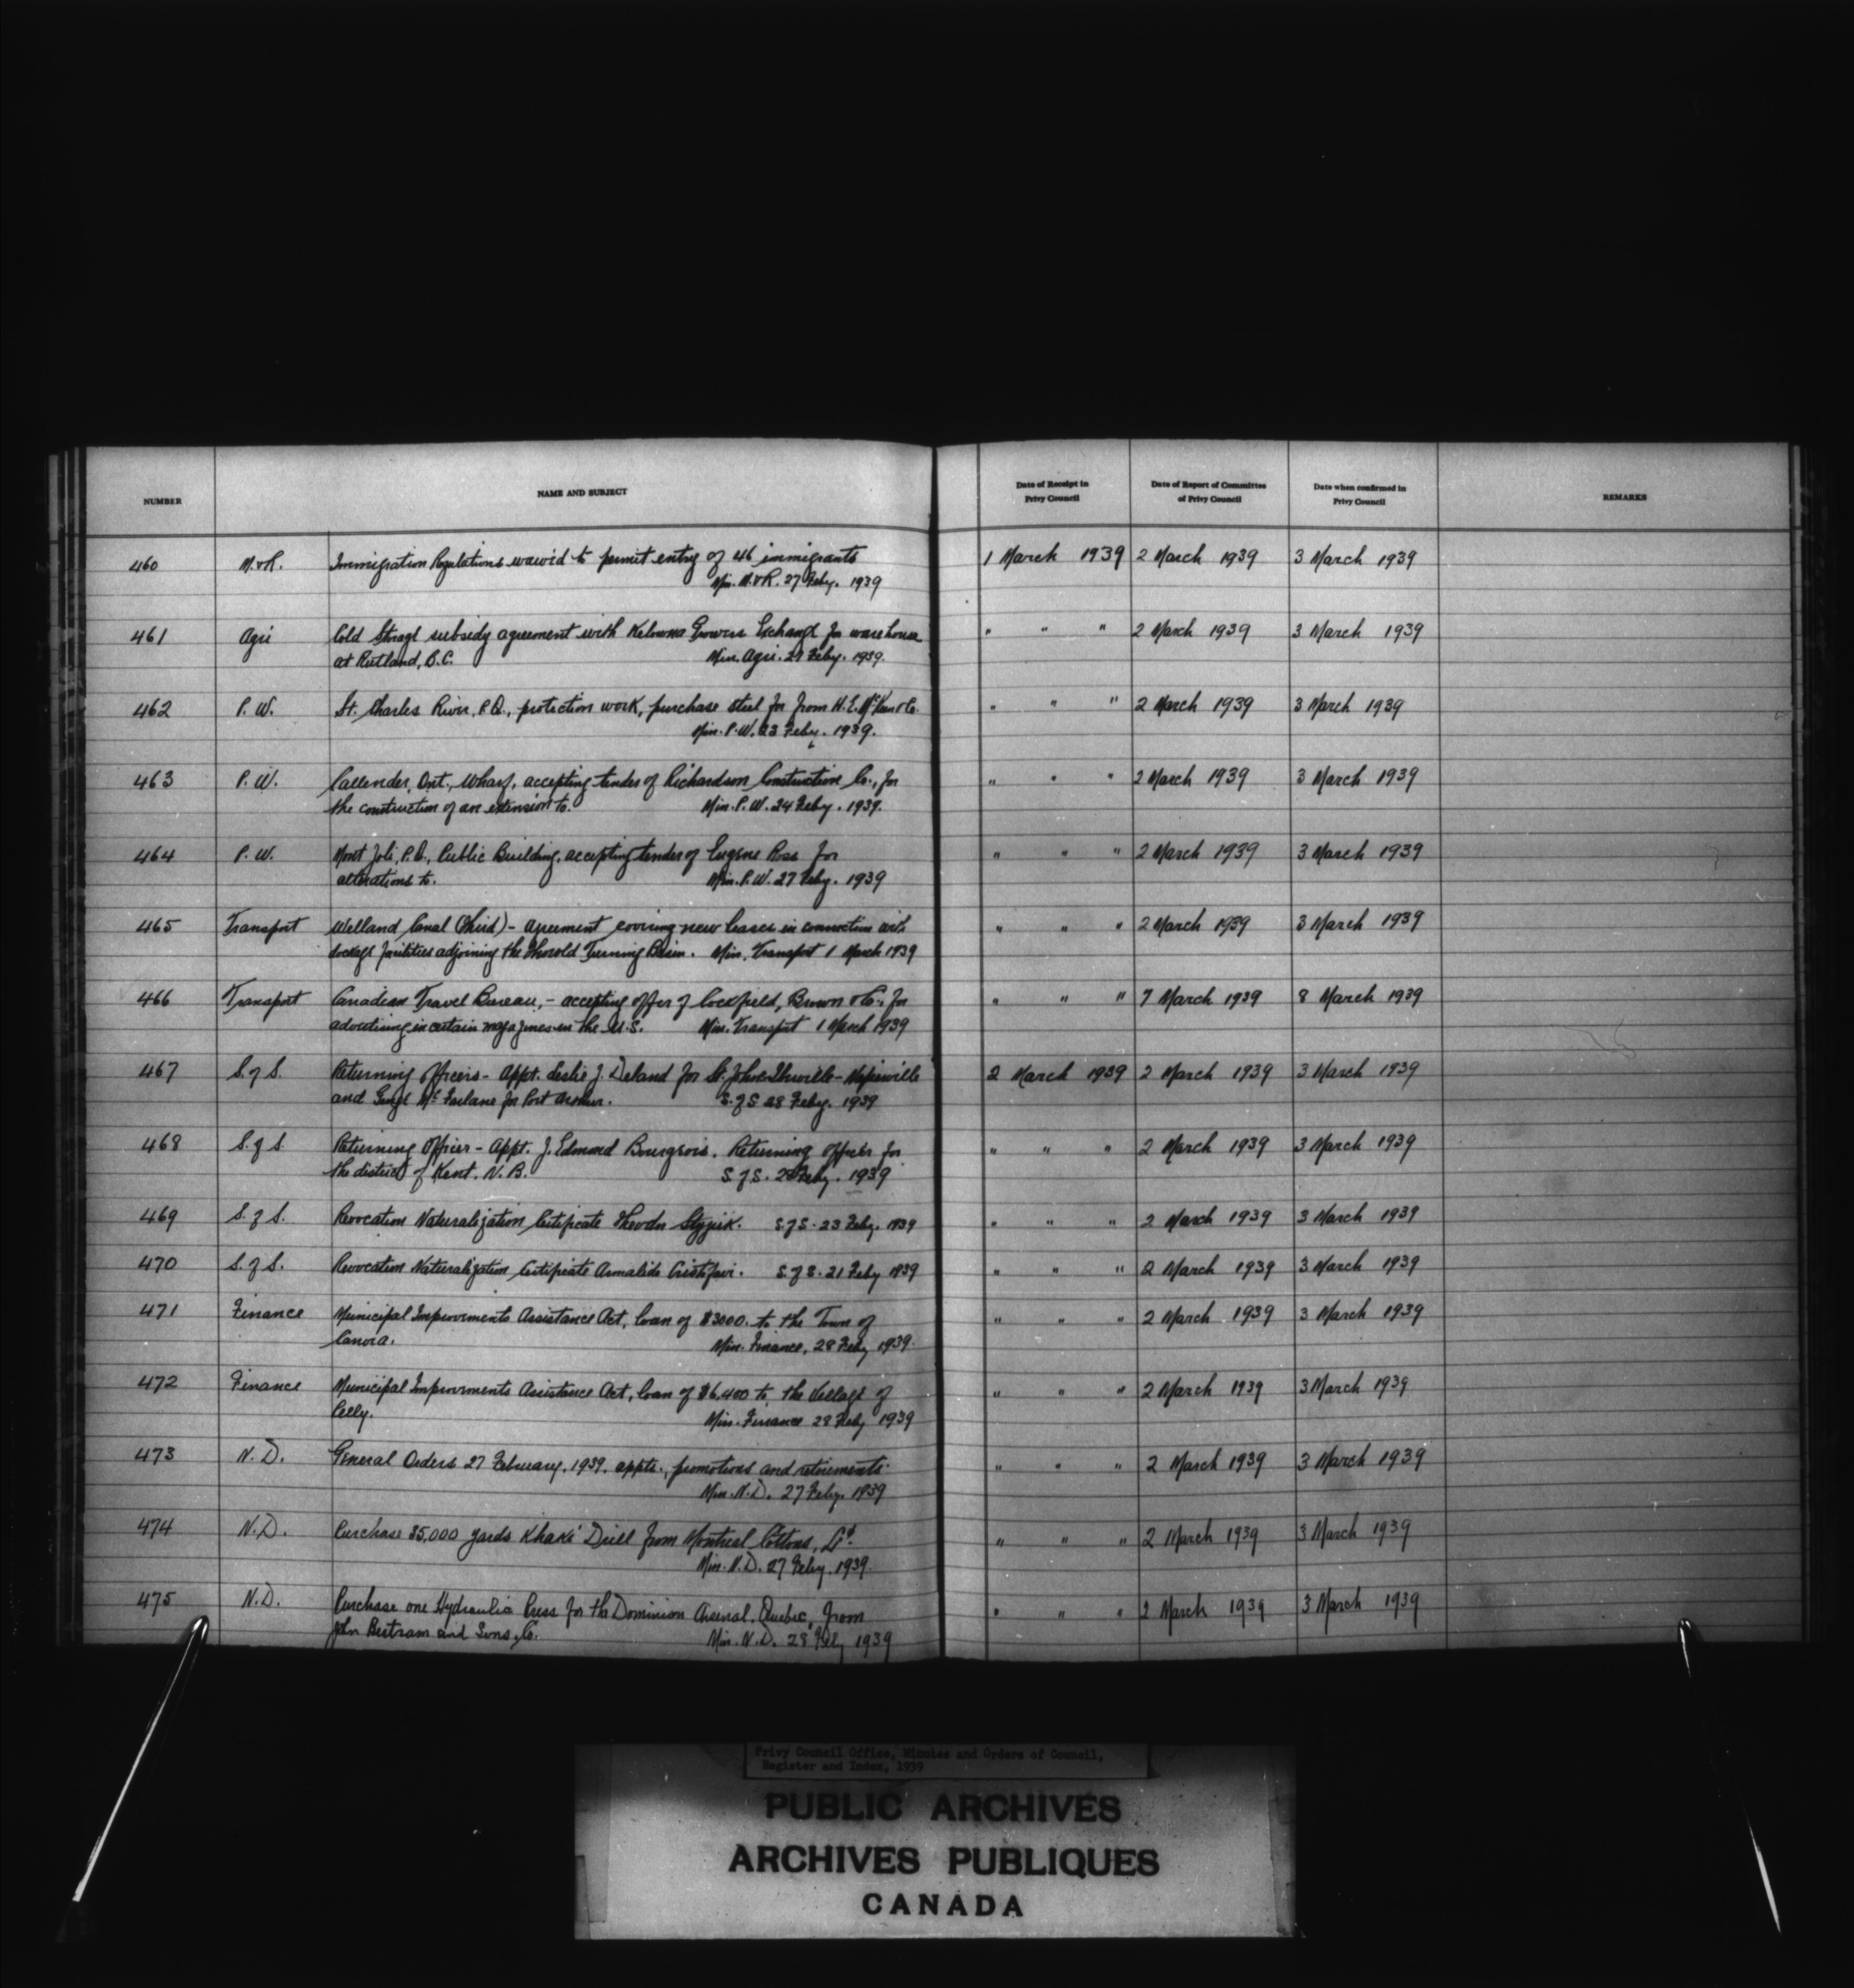 NUMBER NAME AND SUBJECT Date of Receipt in Privy Council Date of Report of Committee of Privy Council Date when confirmed in Privy Council REMARKS
460 M.&R. Immigration Regulations waived to permit entry of 46 immigrants 1 March 1939 2 March 1939 3 March 1939
Min. M.&R. 27 Feby. 1939
461 Agri Cold Storage subsidy agreement with Kelowna Growers Exchange for warehouse " " " 2 March 1939 3 March 1939
at Rutland, B.C. Min. Agri. 27 Feby. 1939.
462 P.W. St. Charles River, P.Q., protection work, purchase steel for from H.E. " " " 2 March 1939 3 March 1939
Min. P.W. 23 Feby. 1939.
463 P.W. Callender, Ont., Wharf, accepting tender of Richardson Construction Co., for " " " 2 March 1939 3 March 1939
the construction of an extension to. Min. P.W. 24 Feby. 1939.
464 P.W. Mont Joli, P.Q., Public Building, accepting tender of Eugene Ross for " " " 2 March 1939 3 March 1939
alterations to. Min. P.W. 27 Feby. 1939
465 Transport Welland Canal (Third) - agreement covering new leases in connection with " " " 2 March 1939 3 March 1939
dockage facilities adjoining the Thorold Turning Basin. Min. Transport 1 March 1939
466 Transport Canadian Travel Bureau, - accepting offer of Cockfield, Brown & Co., for " " " 7 March 1939 8 March 1939
advertising in certain magazines in the U.S. Min. Transport 1 March 1939
467 S. of S. Returning Officers - Appt. Leslie J. Deland for St. Johns-Iberville-Napierville 2 March 1939 2 March 1939 3 March 1939
and McFarlane for Port Arthur. S. of S 28 Feby. 1939
468 S. of S. Returning Officer - Appt. J. Edmond Bourgeois. Returning officer for " " " 2 March 1939 3 March 1939
the district of Kent. N.B. S. of S. Feby. 1939
469 S. of S. Revocation Naturalization Certificate " " " 2 March 1939 3 March 1939
S. of S. 23 Feby. 1939
470 S. of S. Revocation Naturalization Certificate S. of S. 21 Feby 1939 " " " 2 March 1939 3 March 1939
471 Finance Municipal Improvements Assistance Act, loan of $3000. to the Town of " " " 2 March 1939 3 March 1939
Canora. Min. Finance, 28 Feby 1939.
472 Finance Municipal Improvements Assistance Act, loan of $6,400 to the Village of " " " 2 March 1939 3 March 1939
Pelly. Min. Finance 28 Feby 1939
473 N.D. General Orders 27 February, 1939. appts., promotions and retirements. " " " 2 March 1939 3 March 1939
Min. N.D. 27 Feby. 1939
474 N.D. Purchase 35,000 yards Khaki Drill from Montreal Cottons, Ltd. " " " 2 March 1939 3 March 1939
Min. N.D. 27 Feby. 1939.
475 N.D. Purchase one Hydraulic Press for the Dominion Arsenal, Quebec, from " " " 2 March 1939 3 March 1939
John Bertram and Sons, Co. Min. N.D. 28 Feby 1939
Privy Council Office, Minutes and Orders of Council,
Register and Index, 1939
PUBLIC ARCHIVES
ARCHIVES PUBLIQUES
CANADA